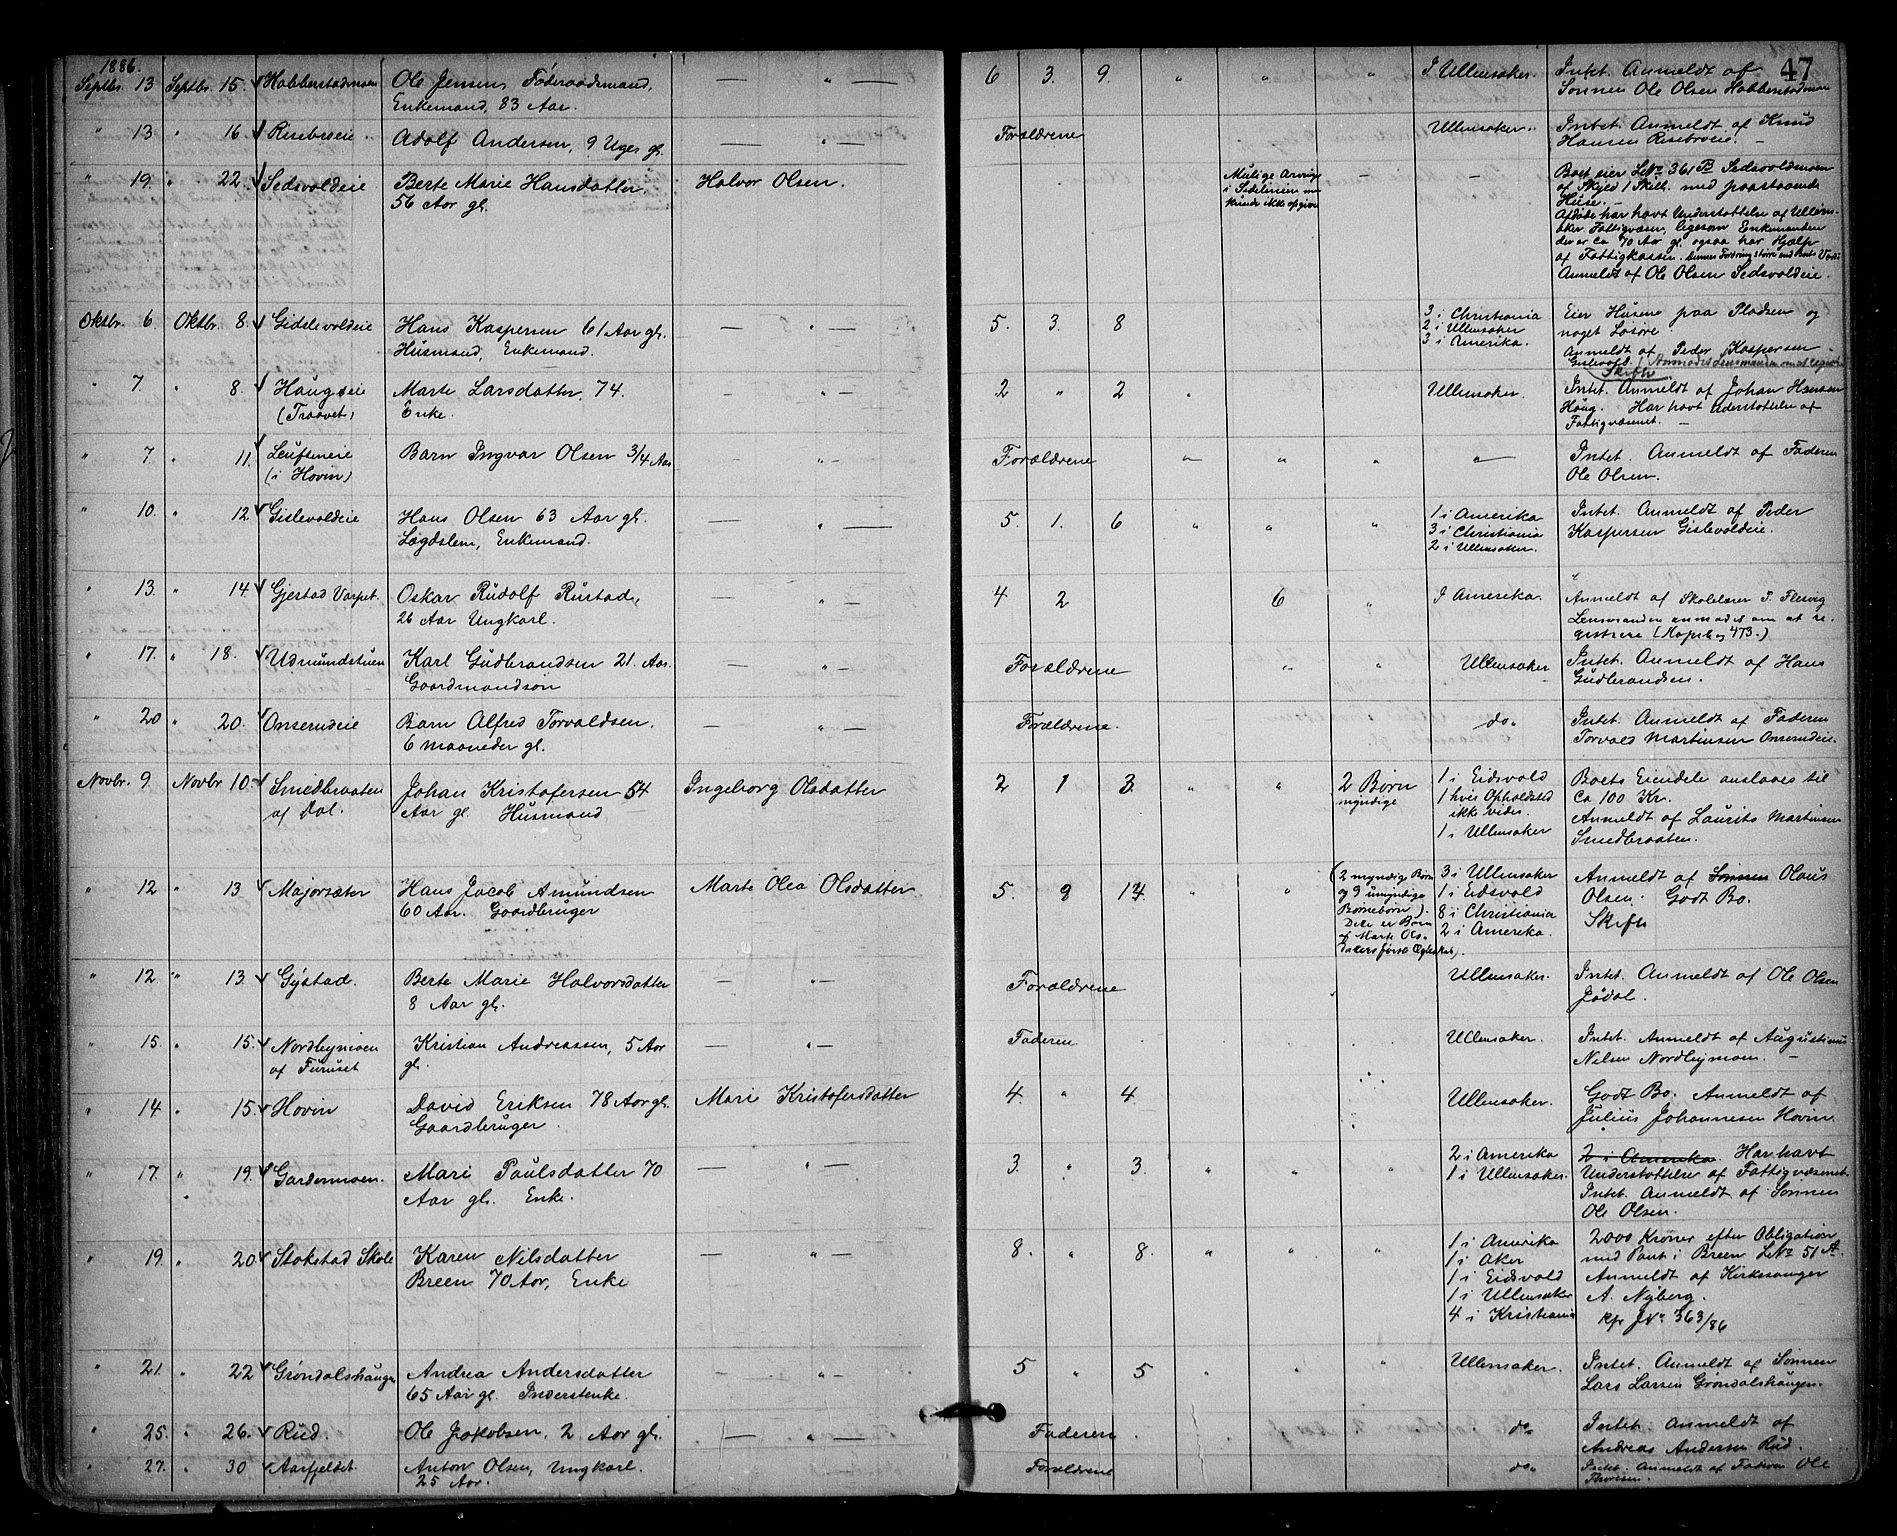 47
1886.
Septbr. 13 Septbr. 15. Habberstadmoen Ole Jensen, Føderaadsmand, — " — 6 3. 9. " " " I Ullensaker. Intet. Anmeldt af
Enkemand, 83 Aar. Sønnen Ole Olsen Habberstadmoen
" 13 " 16 Risebroeie Adolf Andersen, 9 Uger gl. — " — Forældrene Ullensaker. Intet. Anmeldt af Knud
Hansen Risebroeie. —
" 19. " 22. Sedsvoldeie Berte Marie Hansdatter, Halvor Olsen. Mulige Arvinge — — Boet eier LNo 361 B Sedsvoldmoen
56 Aar gl. i Sidelinien af Skyld 1 Skill. med paastaaende
kunde ikke opgives Huse. —
Afdøde har havt Understøttelse af Ullens-
aker Fattigvæsen, ligesom Enkemanden
der er ca 70 Aar gl. ogsaa har Hjælp
af Fattigkassen. Dennes Fordring større end Boets Værdi
Anmeldt af Ole Olsen Sedsvoldeie.
Oktbr. 6. Oktbr. 8. Gislevoldeie Hans Kaspersen 61 Aar gl. — " — 5. 3. 8 3 i Christiania Eier Husene paa Pladsen og
Husmand, Enkemand. 2 i Ullensaker noget Løsøre.
3 i Amerika. Anmeldt af Peder Kaspersen
Gislevold. / Anmodet Lensmanden om at registr.
Skifte
" 7. " 8. Haugseie Marte Larsdatter, 74. — " — 2 " 2 " Ullensaker. Intet. Anmeldt af Johan Hansen
(Traavet) Enke. Haug. Har havt Understøttelse af
Fattigvæsenet. —
" 7 " 11. Leufsneie Barn Ingvar Olsen 3/4 Aar — " — Forældrene " " " " Intet. Anmeldt af Faderen
(i Hovin) Ole Olsen.
" 10. " 12. Gislevoldeie Hans Olsen 63 Aar gl. — " — 5. 1. 6 " " " 1 i Amerika Intet. Anmeldt af Peder
Lægdslem, Enkemand. 3 i Christiania Kaspersen Gislevoldeie.
2 i Ullensaker.
" 13. " 14 Gjestad Varpet. Oskar Rudolf Rustad, — " — 4 2 6 " I Amerika. Anmeldt af Skolelærer P. Flesvig
26 Aar Ungkarl. Lensmanden anmodet om at re-
gistrere (Kopib. 473.)
" 17. " 18. Udmundstuen Karl Gudbrandsen 21. Aar. — " — Forældrene " " Ullensaker Intet. Anmeldt af Hans
Gaardmandssøn Gudbrandsen.
" 20 " 20. Onsrudeie Barn Alfred Torvaldsen. — " — Forældrene. do. Intet. Anmeldt af Faderen
6 Maaneder gl. Torvald Martinsen Onsrudeie.
Novbr. 9 Novbr. 10. Smedbraaten Johan Kristofersen 54 Ingeborg Olsdatter 2 1 3. " " 2 Børn 1 i Eidsvold Boets Eiendele anslaaes til
af Dal. Aar gl. Husmand myndige 1 hvis Opholdsted ca 100 Kr.
ikke vides. Anmeldt af Laurits Martinsen
1 i Ullensaker Smedbraaten.
" 12 " 13 Majorsæter Hans Jacob Amundsen Marte Olea Olsdatter 5. 9 14. " " (2 myndige Børn 3 i Ullensaker Anmeldt af Sønnen Olaus
60 Aar. Gaardbruger og 9 umyndige 1 i Eidsvold Olsen. Godt Bo.
Børnebørn). 8 i Christiania Skifte
Dele er Børn 2 i Amerika.
af Marte Ols-
datters første Ægteskab.
" 12 " 13. Gystad. Berte Marie Halvorsdatter — " — Forældrene Ullensaker. Intet. Anmeldt af Ole Olsen
8 Aar gl. Jødal.
" 15. " 15. Nordbymoen Kristian Andreassen, 5 Aar — " — Faderen Ullensaker. Intet. Anmeldt af Augustinus
af Furuset gl. Nilsen Nordbymoen. —
" 14 " 15. Hovin David Eriksen 78 Aar gl. Mari Kristofersdatter 4. " 4. Ullensaker. Godt Bo. Anmeldt af
Gaardbruger. Julius Johannesen Hovin.
" 17. " 19. Gardermoen. Mari Paulsdatter 70 — " — 3. " 3. " " " 2 i Amerika 2 i Amerika Har havt
Aar gl. Enke. 1 i Ullensaker. Understøttelse af Fattigvæsenet.
Intet. Anmeldt af Sønnen
Ole Olsen.
" 19. " 20. Stokstad Skole Karen Nilsdatter — " — 8. " 8. " " " 1 i Amerika 2000 Kroner efter Obligation
Breen 70 Aar, Enke 1 i Aker med Pant i Breen LNo 51 A.
1 i Eidsvold Anmeldt af Kirkesanger
1 i Ullensaker A. Nyberg.
4 i Kristiania Kfr JNo 363/86
" 21. " 22 Grøndalshaugen Andrea Andersdatter — " — 5 " 5 " " " Ullensaker. Intet. Anmeldt af Sønnen
65 Aar gl. Inderstenke. Lars Larsen Grøndalshaugen.
" 25. " 26. Rud. Ole Jakobsen, 2 Aar gl. — " — Faderen. do Intet. Anmeldt af
Andreas Andersen Rud.
" 27. " 30 Aarfjeldet. Anton Olsen, Ungkarl. Forældrene do. Intet. Anmeldt af Faderen Ole
25 Aar. Thoresen.